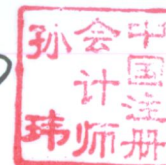 中国注册
会计师
孙玮